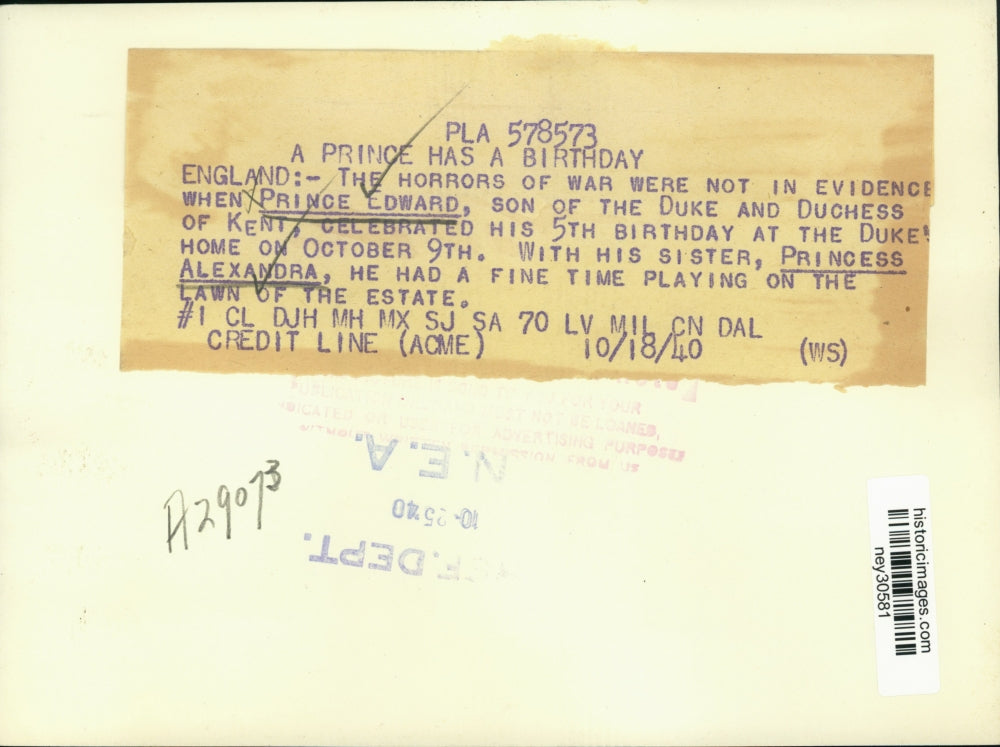 PLA 578573
A PRINCE HAS A BIRTHDAY
ENGLAND:- THE HORRORS OF WAR WERE NOT IN EVIDENCE
WHEN PRINCE EDWARD, SON OF THE DUKE AND DUCHESS
OF KENT, CELEBRATED HIS 5TH BIRTHDAY AT THE DUKE'S
HOME ON OCTOBER 9TH. WITH HIS SISTER, PRINCESS
ALEXANDRA, HE HAD A FINE TIME PLAYING ON THE
LAWN OF THE ESTATE.
#1 CL DJH MH MX SJ SA 70 LV MIL CN DAL
CREDIT LINE (ACME) 10/18/40 (WS)
FOR YOUR
PUBLICATION NOT BE LOANED,
OR USED FOR ADVERTISING PURPOSES
FROM US
N.E.A.
10-25 40
REF. DEPT.
A29073
historicimages.com
ney30581